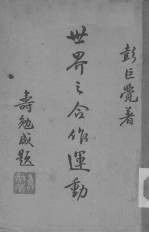 彭巨覺著
世界之合作運動
壽勉成題